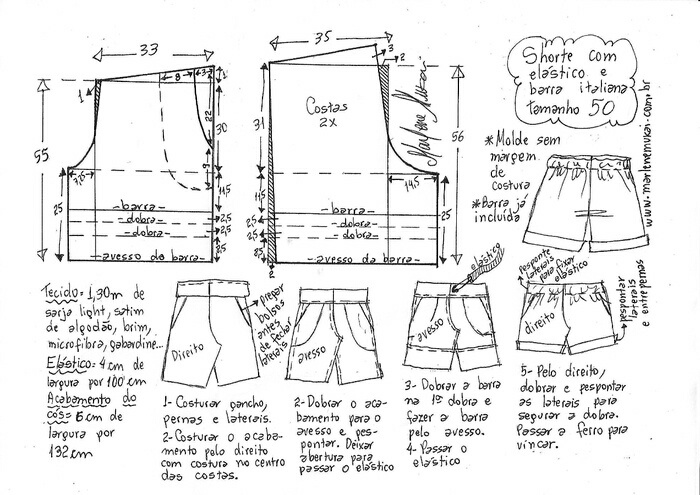 33
8
3
1
1
22
30
55
9
7,5
11,5
25
-barra-
-dobra-
-dobra-
2,5
2,5
25
-avesso da barra-
35
3
2
Costas
2x
31
56
14,5
11,5
25
-barra-
-dobra-
-dobra-
2,5
2,5
25
-avesso da barra-
2
Marlene Mukai
Shorte com
elástico e
barra italiana
tamanho 50
*Molde sem
margem
de
costura
*Barra já
incluida
www.marlenemukai.com.br
Tecido= 1,30m de
sarja light, satim
de algodão, brim,
microfibra, gabardine...
Elástico= 4 cm de
largura por 100 cm
Acabamento do
cós= 6 cm de
largura por
132 cm
Direito
Prepar
bolsos
antes
de fechar
laterais
1- Costurar gancho,
pernas e laterais.
2- Costurar o acaba-
mento pelo direito
com costura no centro
das costas.
avesso
2- Dobrar o aca-
bamento para o
avesso e pes-
pontar. Deixar
abertura para
passar o elástico
elástico
avesso
3- Dobrar a barra
na 1ª dobra e
fazer a barra
pelo avesso.
4- Passar o
elástico
pesponte
laterais
para fixar
elástico
direito
pespontar
laterais
e entrepernas
5- Pelo direito,
dobrar e pespontar
as laterais para
segurar a dobra.
Passar a ferro para
vincar.